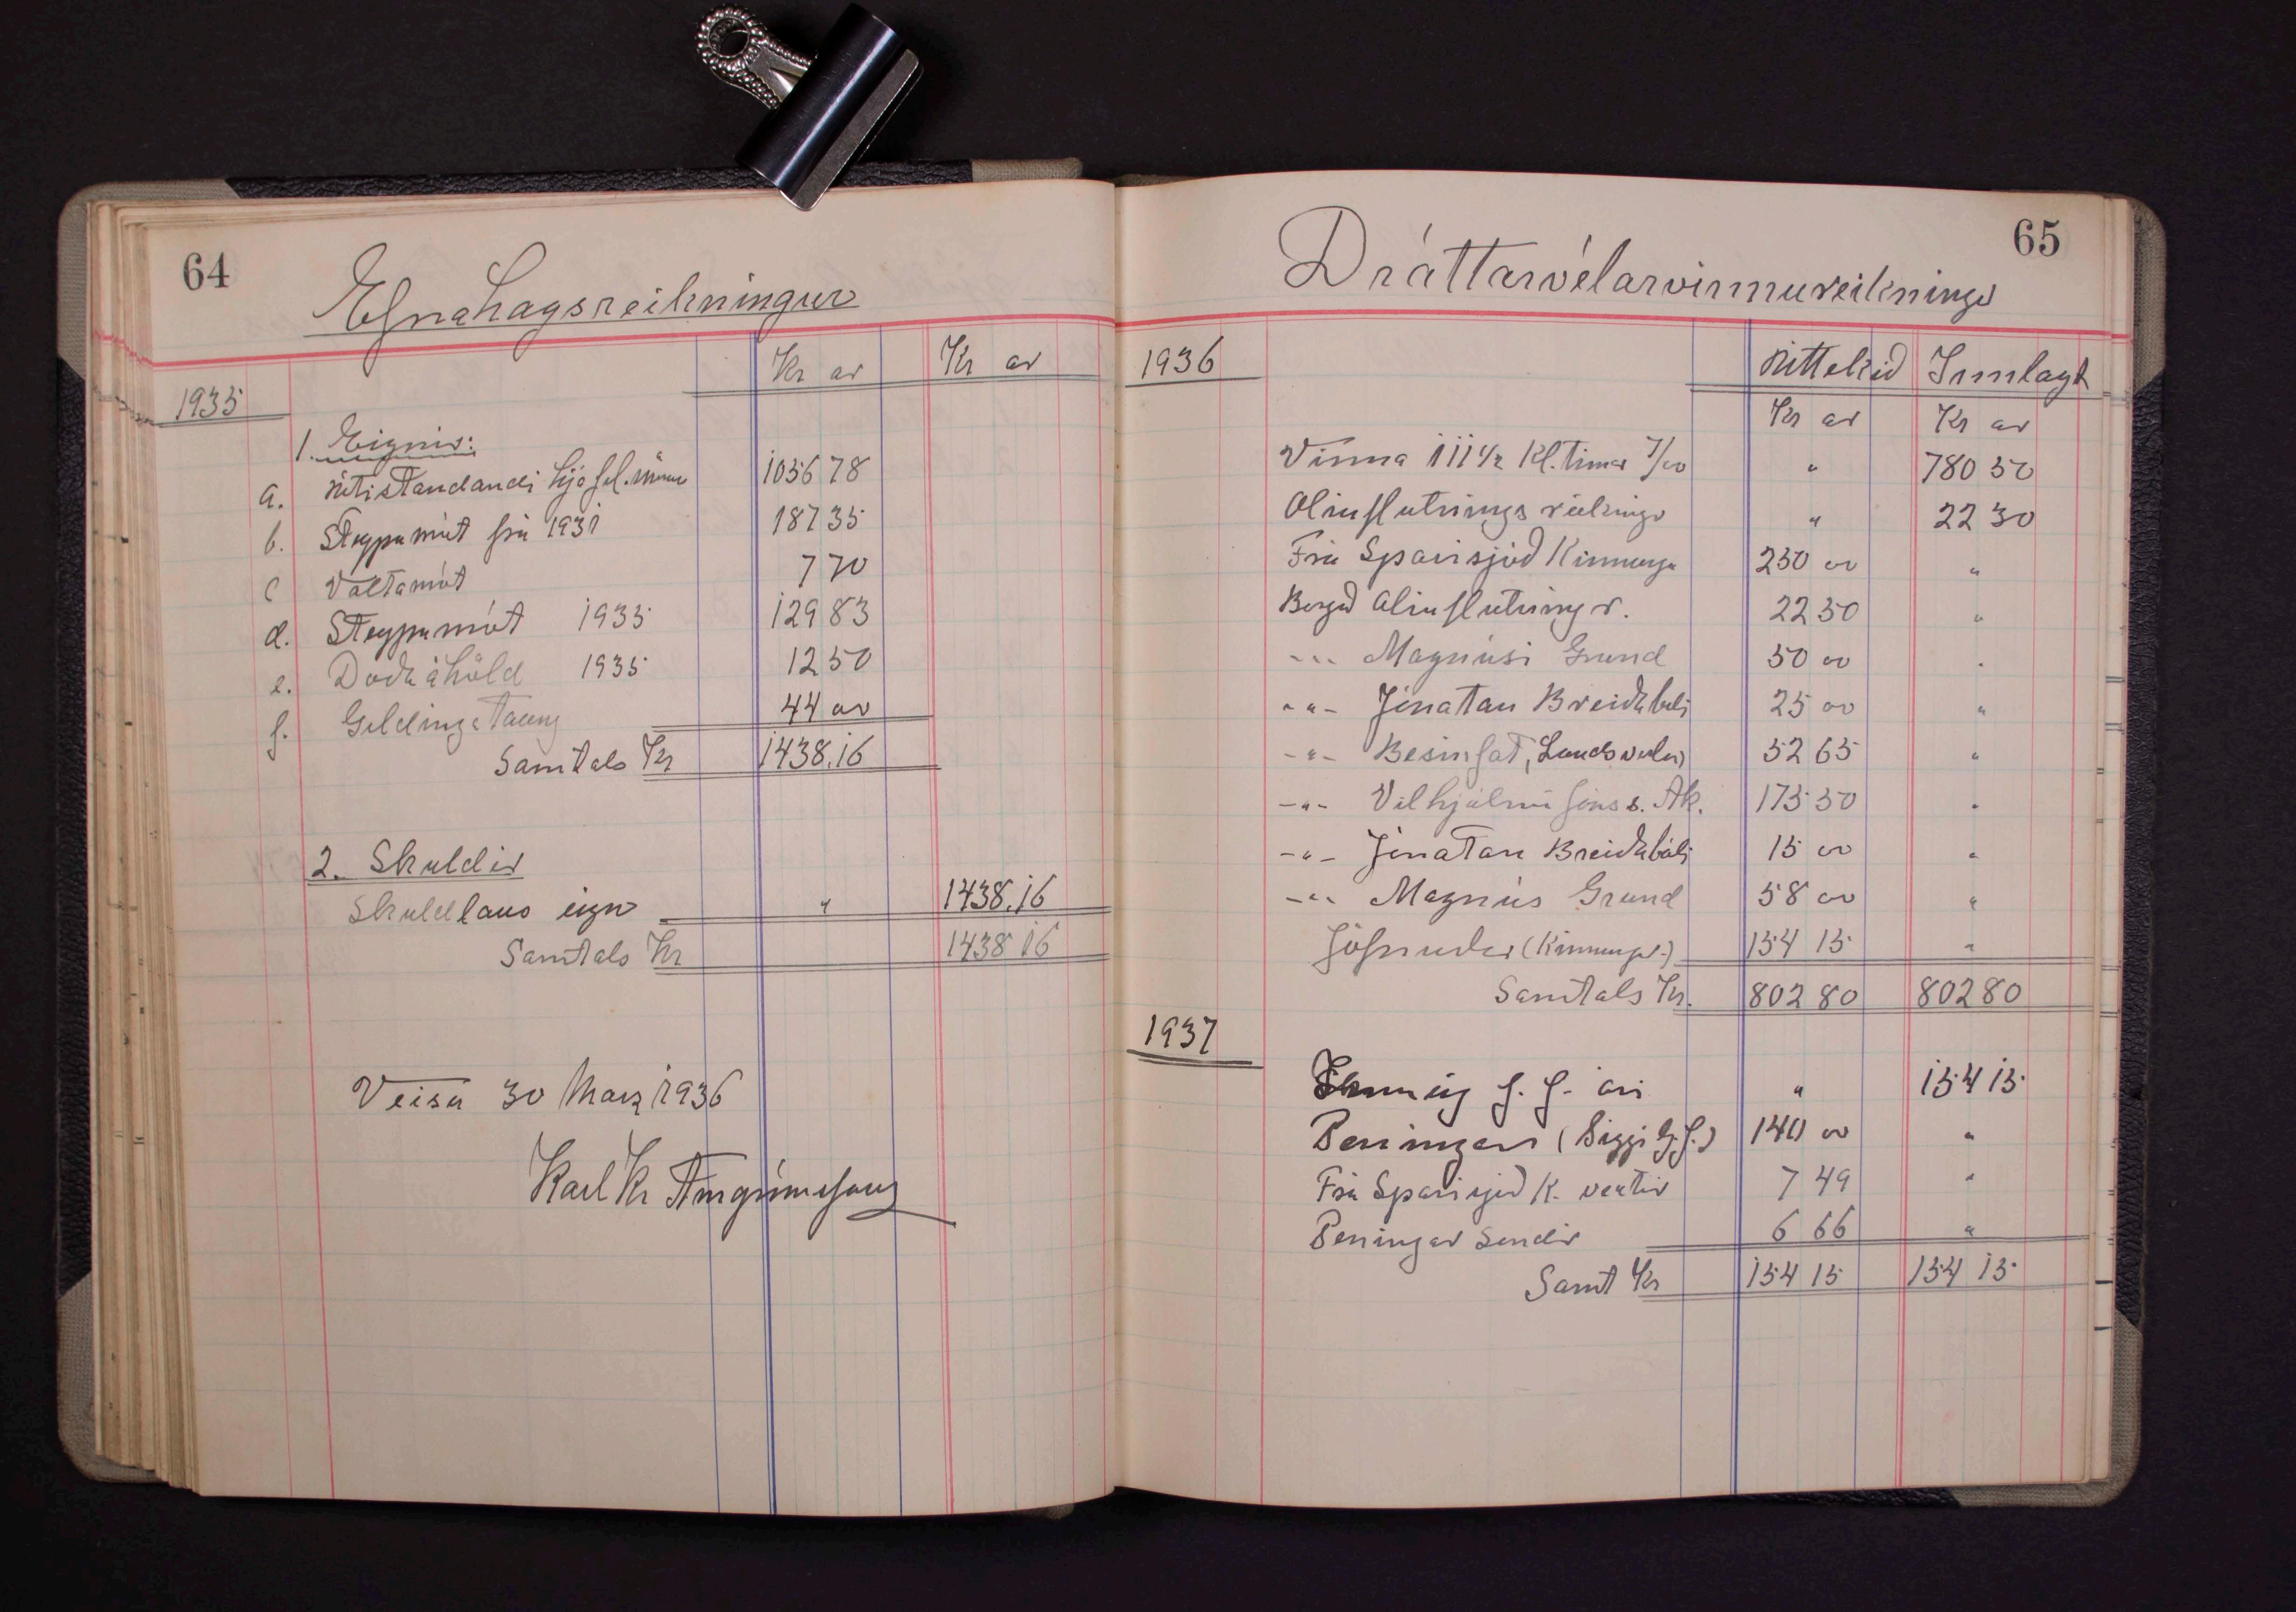 64
Efnahagsreikningur
Kr ar Kr ar
1935
1. Eignir:
a. Útistandandi hjá fél.mönn 1056 78
b. Steypumót frá 1931 187 35
c Valtamót 7 70
d. Steypumót 1935 129 83
e. Doðaáhöld 1935 12 50
f. Geldingataung 44 00
Samtals Kr 1438.16
2. Skuldir
Skuldlaus eign " 1438.16
Samtals Kr 1438 16
Veisu 30 Marz 1936
Karl Kr Arngrímsson
65
Dráttarvélarvinnureikningr
1936 Úttekið Innlagt
Kr ar Kr ar
Vinna 111½ Kl.tímar 7/00 " 780 50
Olíuflutnings reikningr " 22 30
Frá Sparisjóð Kinnunga 250 00 "
Borgað olíuflutning r. 22 50 "
-"- Magnúsi Grund 50 00 "
-"- Jónatan Breiðabóli 25 00 "
-"- Besinfat, 52 65 "
-"- Vilhjálmi Jónss. Ak. 175 50 "
-"- Jónatan Breiðabóli 15 00 "
-"- Magnús Grund 58 00 "
Jöfnuður (Kinnungr.) 154 15 "
Samtals Kr. 802 80 802 80
1937
f. f. ári " 154 15
Peningar (Siggi G.J.) 140 00 "
Frá Sparisjóð K. vextir 7 49 "
Peningar sendir 6 66 "
Samt Kr 154 15 154 15